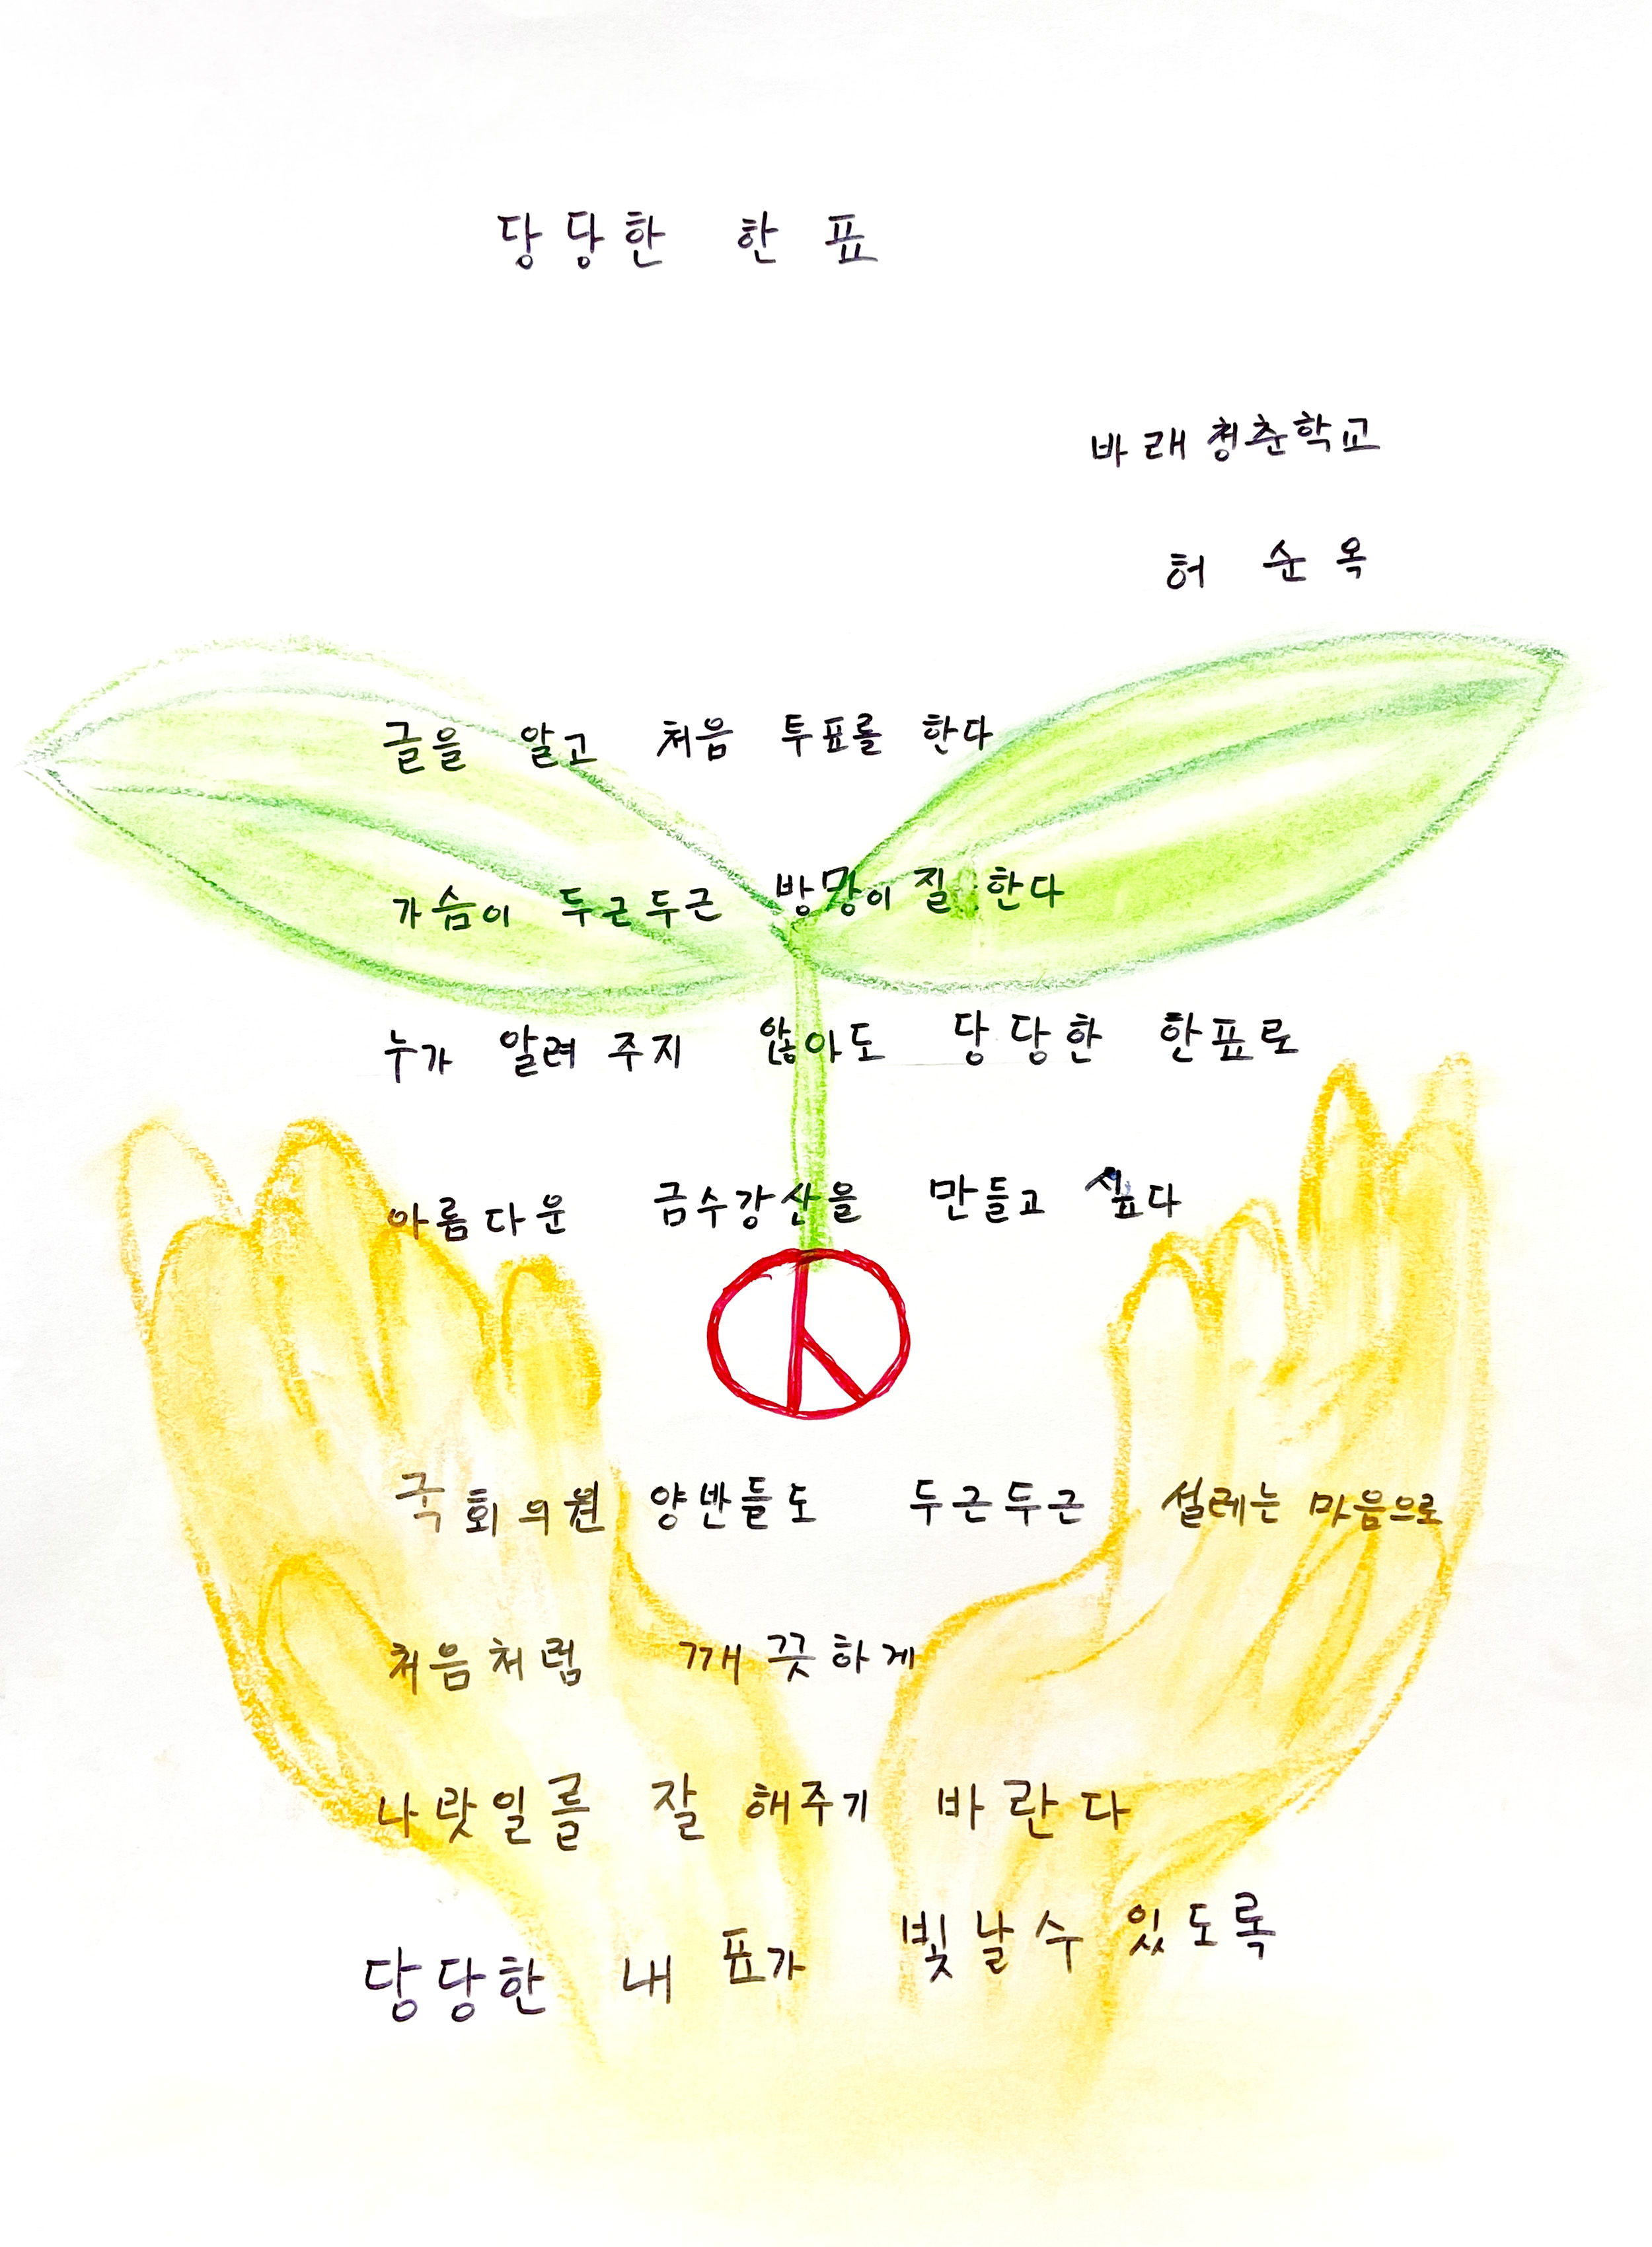 당당한 한 표
바래청춘학교
허 순 옥
글을 알고 처음 투표를 한다
가슴이 두근두근 방망이 질 한다
누가 알려 주지 않아도 당당한 한표로
아름다운 금수강산을 만들고 싶다
국회의원 양반들도 두근두근 설레는 마음으로
처음처럼 깨끗하게
나랏일를 잘 해주기 바란다
당당한 내 표가 빛날수 있도록